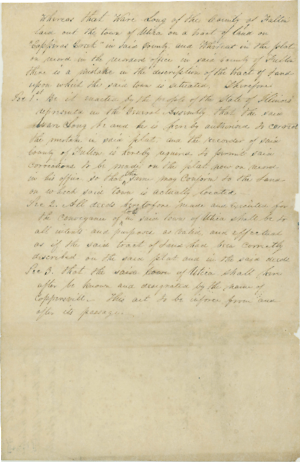 Whereas that Ware Long of the County of Fulton
laid out the town of Utica on a tract of land on
Copperas Creek in said County and Whereas in the plat
on record in the recorders office in said County of Fulton
there is a mistake in the description of the tract of Land
upon which the said town is situated Therefore
Sec 1st Be it enacted by the people of the State of Illinois
represented in the General Assembly that the said
Ware Long be and he is hereby authorised to correct
the mistake in said plat and the recorder of said
County of Fulton is hereby required to permit said
corrections to be made on the plat now on record
in his office so that the same may conform to the Lands
on which said town is actually located
Sec 2. All deeds heretofore made and executed for
the conveyance of in said town of Utica shall be to
all intents and purposes as valid and effectual
as if the said tract of Land had been correctly
described on the said plat and in the said deeds
Sec 3. that the said town of Utica shall here
after be known and designated by the name of
Copperas. This act to be in force from and
after its passage